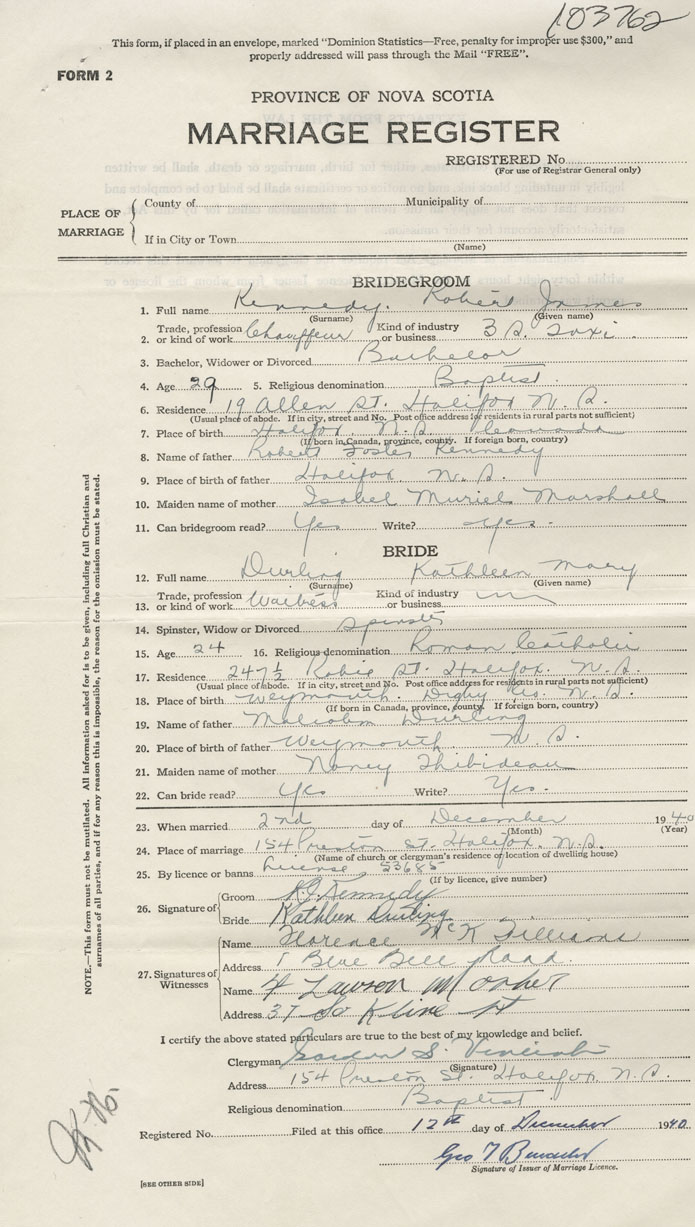 103762
This form, if placed in an envelope, marked "Dominion Statistics—Free, penalty for improper use $300," and
properly addressed will pass through the Mail "FREE".
FORM 2
PROVINCE OF NOVA SCOTIA
MARRIAGE REGISTER
REGISTERED No.
(For use of Registrar General only)
PLACE OF MARRIAGE
County of Municipality of
If in City or Town
(Name)
BRIDEGROOM
1. Full name Kennedy. Robert James
(Surname) (Given name)
2. Trade, profession or kind of work Chauffeur Kind of industry or business 3 S. Taxi
3. Bachelor, Widower or Divorced Bachelor
4. Age 29 5. Religious denomination Baptist
6. Residence 19 Allen St. Halifax N.S.
(Usual place of abode. If in city, street and No. Post office address for residents in rural parts not sufficient)
7. Place of birth Halifax. N.S. Canada
(If born in Canada, province, county. If foreign born, country)
8. Name of father Robert Foster Kennedy
9. Place of birth of father Halifax N.S.
10. Maiden name of mother Isabel Muriel Marshall
11. Can bridegroom read? Yes Write? yes.
BRIDE
12. Full name Durling Kathleen Mary
(Surname) (Given name)
13. Trade, profession or kind of work Waitress Kind of industry or business
14. Spinster, Widow or Divorced Spinster
15. Age 24 16. Religious denomination Roman Catholic
17. Residence 247½ Robie St. Halifax. N.S.
(Usual place of abode. If in city, street and No. Post office address for residents in rural parts not sufficient)
18. Place of birth Weymouth Digby Co. N.S.
(If born in Canada, province, county. If foreign born, country)
19. Name of father Malcolm Durling
20. Place of birth of father Weymouth N.S.
21. Maiden name of mother Nancy Thibideau
22. Can bride read? Yes Write? Yes.
23. When married 2nd day of December 1940
(Month) (Year)
24. Place of marriage 154 Preston St. Halifax. N.S.
(Name of church or clergyman's residence or location of dwelling house)
25. By licence or banns License 53685
(If by licence, give number)
26. Signature of
Groom R J Kennedy
Bride Kathleen Durling
27. Signatures of Witnesses
Name Florence McK
Address 1 Blue Bell Road.
Name Lawson Mosher
Address 37 Kline St
I certify the above stated particulars are true to the best of my knowledge and belief.
Clergyman Gordon S.
(Signature)
Address 154 Preston St. Halifax N.S.
Religious denomination Baptist
Registered No. Filed at this office 12th day of December 1940.
Geo T
Signature of Issuer of Marriage Licence.
[SEE OTHER SIDE]
NOTE.—This form must not be mutilated. All information asked for is to be given, including full Christian and
surnames of all parties, and if for any reason this is impossible, the reason for the omission must be stated.